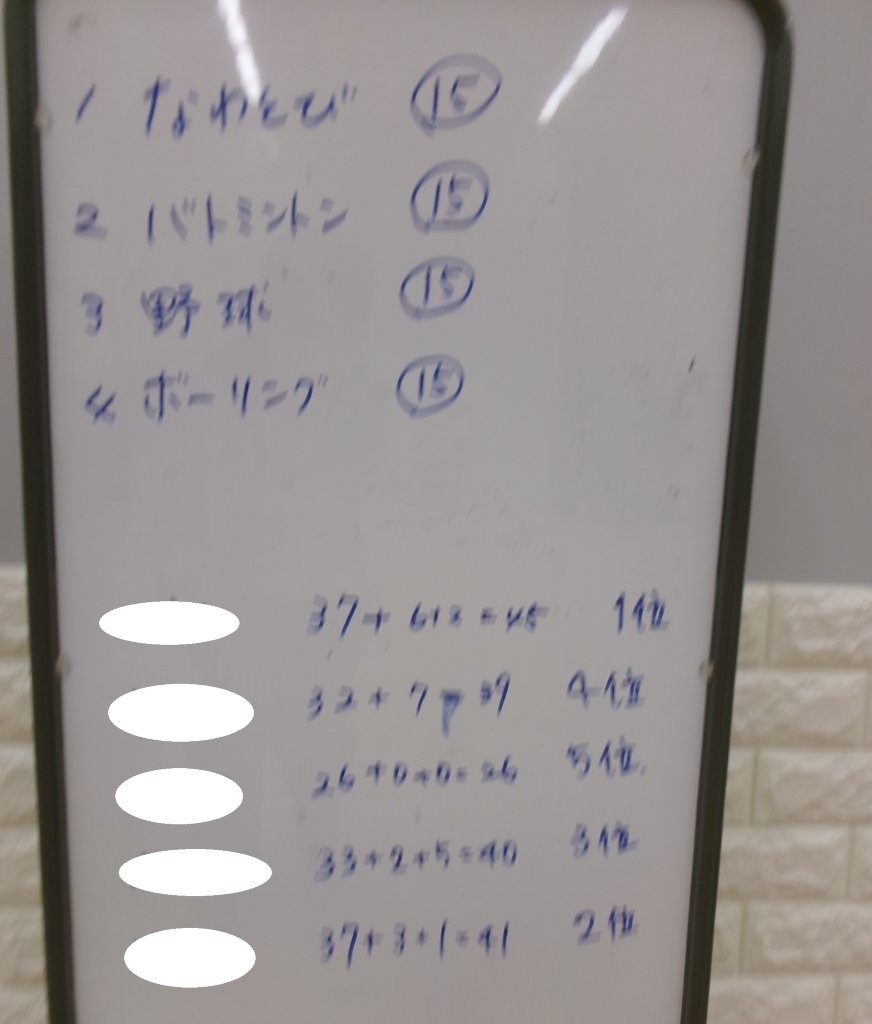 1 なわとび 15
2 バトミントン 15
3 野球 15
4 ボーリング 15
37+6+2=45 1位
32+7 39 4位
26+0+0=26 5位
33+2+5=40 3位
37+3+1=41 2位